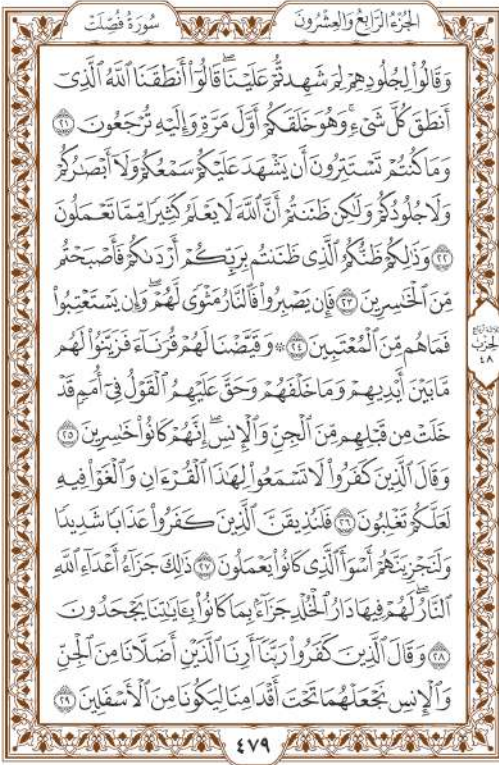 الجُزْءُ الرَّابِعُ وَالعِشْرُونَ
سُورَةُ فُصِّلَتْ
وَقَالُواْ لِجُلُودِهِمۡ لِمَ شَهِدتُّمۡ عَلَيۡنَاۖ قَالُوٓاْ أَنطَقَنَا ٱللَّهُ ٱلَّذِيٓ
أَنطَقَ كُلَّ شَيۡءٖۚ وَهُوَ خَلَقَكُمۡ أَوَّلَ مَرَّةٖ وَإِلَيۡهِ تُرۡجَعُونَ ٢١
وَمَا كُنتُمۡ تَسۡتَتِرُونَ أَن يَشۡهَدَ عَلَيۡكُمۡ سَمۡعُكُمۡ وَلَآ أَبۡصَٰرُكُمۡ
وَلَا جُلُودُكُمۡ وَلَٰكِن ظَنَنتُمۡ أَنَّ ٱللَّهَ لَا يَعۡلَمُ كَثِيرٗا مِّمَّا تَعۡمَلُونَ
٢٢ وَذَٰلِكُمۡ ظَنُّكُمُ ٱلَّذِي ظَنَنتُم بِرَبِّكُمۡ أَرۡدَىٰكُمۡ فَأَصۡبَحۡتُم
مِّنَ ٱلۡخَٰسِرِينَ ٢٣ فَإِن يَصۡبِرُواْ فَٱلنَّارُ مَثۡوٗى لَّهُمۡۖ وَإِن يَسۡتَعۡتِبُواْ
فَمَا هُم مِّنَ ٱلۡمُعۡتَبِينَ ٢٤ ۞ وَقَيَّضۡنَا لَهُمۡ قُرَنَآءَ فَزَيَّنُواْ لَهُم
مَّا بَيۡنَ أَيۡدِيهِمۡ وَمَا خَلۡفَهُمۡ وَحَقَّ عَلَيۡهِمُ ٱلۡقَوۡلُ فِيٓ أُمَمٖ قَدۡ
خَلَتۡ مِن قَبۡلِهِم مِّنَ ٱلۡجِنِّ وَٱلۡإِنسِۖ إِنَّهُمۡ كَانُواْ خَٰسِرِينَ ٢٥
وَقَالَ ٱلَّذِينَ كَفَرُواْ لَا تَسۡمَعُواْ لِهَٰذَا ٱلۡقُرۡءَانِ وَٱلۡغَوۡاْ فِيهِ
لَعَلَّكُمۡ تَغۡلِبُونَ ٢٦ فَلَنُذِيقَنَّ ٱلَّذِينَ كَفَرُواْ عَذَابٗا شَدِيدٗا
وَلَنَجۡزِيَنَّهُمۡ أَسۡوَأَ ٱلَّذِي كَانُواْ يَعۡمَلُونَ ٢٧ ذَٰلِكَ جَزَآءُ أَعۡدَآءِ ٱللَّهِ
ٱلنَّارُۖ لَهُمۡ فِيهَا دَارُ ٱلۡخُلۡدِ جَزَآءَۢ بِمَا كَانُواْ بِـَٔايَٰتِنَا يَجۡحَدُونَ
٢٨ وَقَالَ ٱلَّذِينَ كَفَرُواْ رَبَّنَآ أَرِنَا ٱلَّذَيۡنِ أَضَلَّانَا مِنَ ٱلۡجِنِّ
وَٱلۡإِنسِ نَجۡعَلۡهُمَا تَحۡتَ أَقۡدَامِنَا لِيَكُونَا مِنَ ٱلۡأَسۡفَلِينَ ٢٩
الحِزْبُ
٤٨
٤٧٩